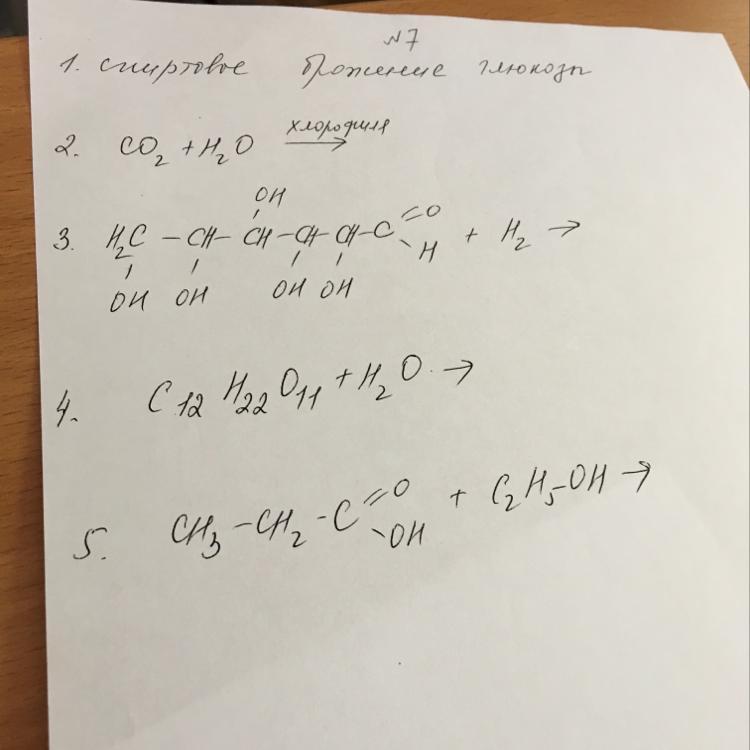 №7
1. спиртовое брожение глюкозы
2. CO2 + H2O хлорофилл →
OH
3. H2C - CH - CH - CH - CH - C =O -H + H2 →
OH OH OH OH
4. C12 H22 O11 + H2O →
5. CH3 - CH2 - C =O -OH + C2H5-OH →